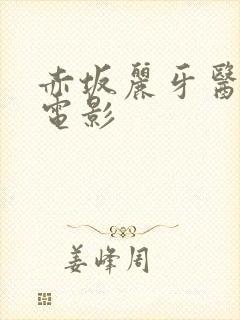 赤坂麗牙醫
電影
姜峰周